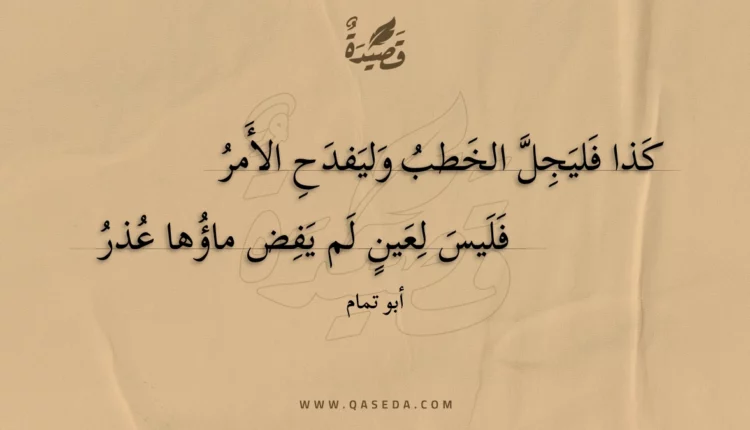 قَصِيْدَةٌ
كَذا فَليَجِلَّ الخَطبُ وَليَفدَحِ الأَمرُ
فَلَيسَ لِعَينٍ لَم يَفِض ماؤُها عُذرُ
أبو تمام
WWW.QASEDA.COM